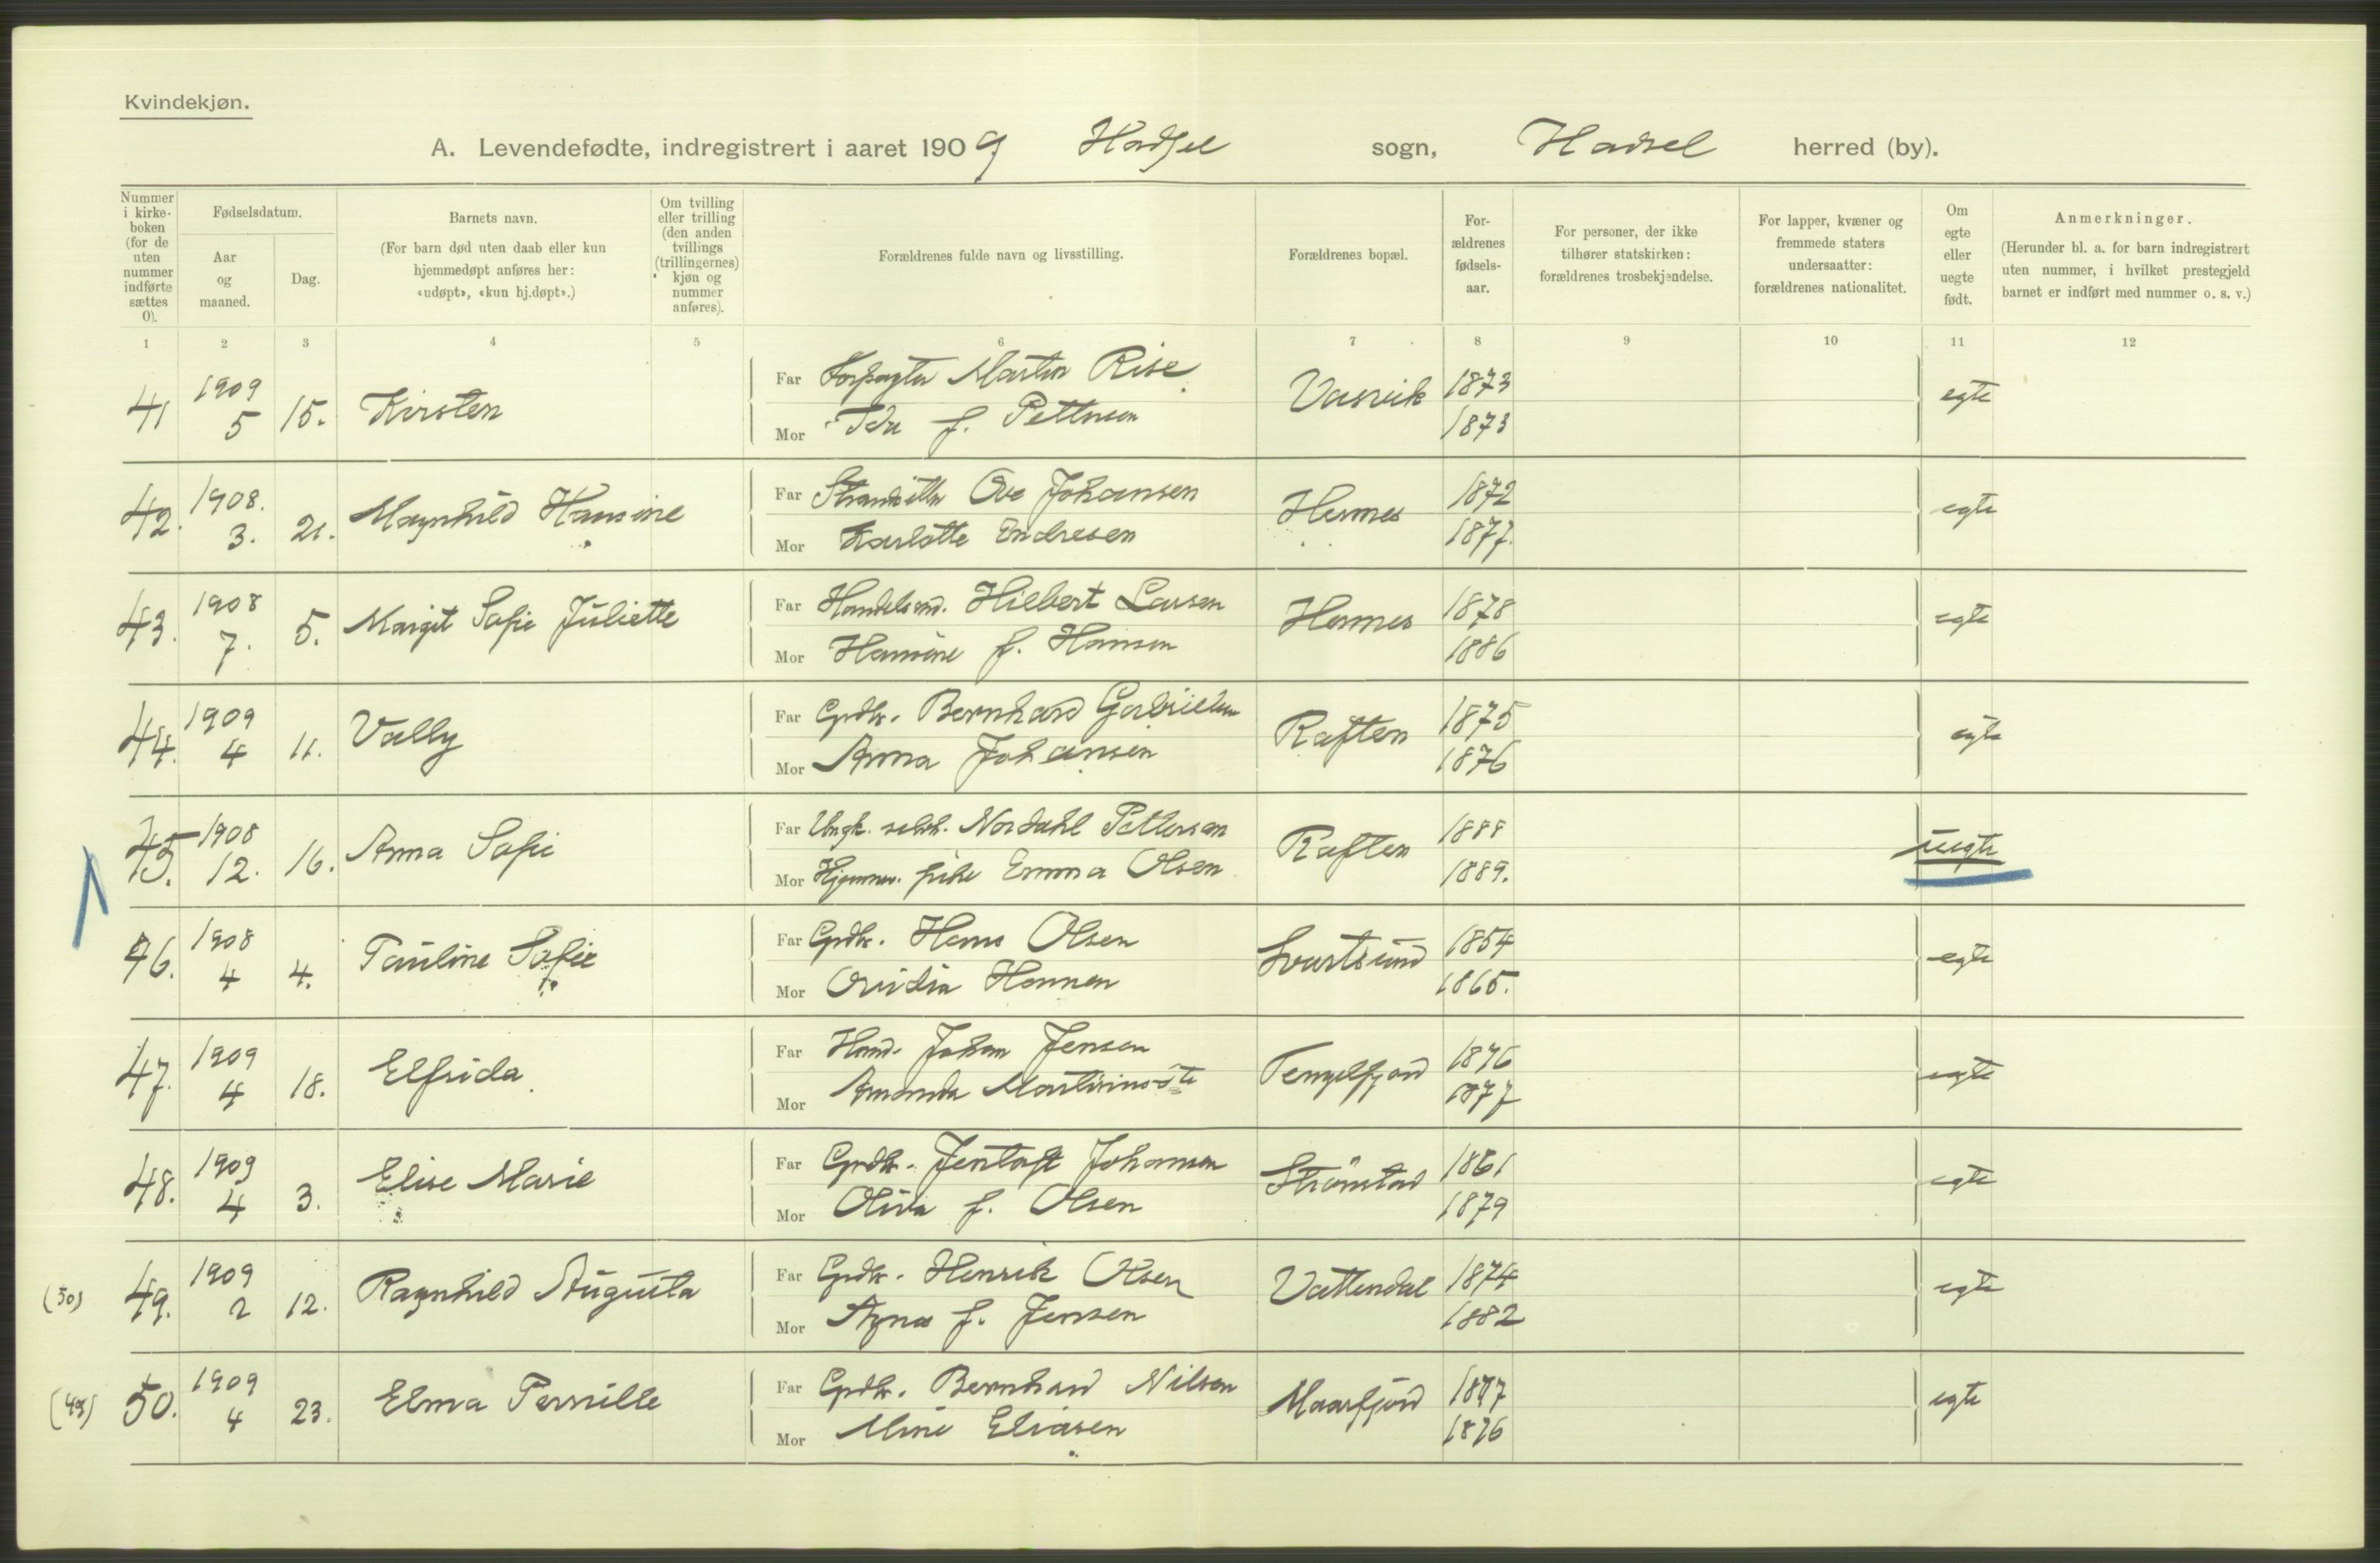 Kvindekjøn.
A. Levendefødte, indregistrert i aaret 1909 Hadsel sogn, Hadsel herred (by).
Nummer i kirke-boken (for de uten nummer indførte sættes 0).
Fødselsdatum.
Aar og maaned.
Dag.
Barnets navn.
(For barn død uten daab eller kun hjemmedøpt anføres her: «udøpt», «kun hj.døpt».)
Om tvilling eller trilling (den anden tvillings (trillingernes) kjøn og nummer anføres).
Forældrenes fulde navn og livsstilling.
Forældrenes bopæl.
For-ældrenes fødsels-aar.
For personer, der ikke tilhører statskirken: forældrenes trosbekjendelse.
For lapper, kvæner og fremmede staters undersaatter: forældrenes nationalitet.
Om egte eller uegte født.
Anmerkninger.
(Herunder bl. a. for barn indregistrert uten nummer, i hvilket prestegjeld barnet er indført med nummer o. s. v.)
1 2 3 4 5 6 7 8 9 10 11 12
41 1909 5 15. Kirsten
Far Forpagter Martin Rise 1873 egte
Mor Ida f. Pettersen 1873
42. 1908. 3. 21. Magnhild Hansine
Far Ove Johansen Hennes 1872 egte
Mor Karlotte Endresen 1877.
43. 1908 7. 5. Margit Sofie Juliette
Far Handelsmd. Hilbert Larsen Hennes 1878 egte
Mor Hansine f. Hansen 1886
44. 1909 4 11. Vally
Far Grdbr. Bernhard Gabrielsen Raften 1875 egte
Mor Anna Johansen 1876
45. 1908 12. 16. Anna Sofie
Far Ungk. Nordahl Pettersen Raften 1888 uegte
Mor Hjemmev. pike Emma Olsen 1889.
46. 1908 4 4. Pauline Sofie
Far Grdbr. Hans Olsen Svartsund 1854 egte
Mor Ovidia Hansen 1865.
47. 1909 4 18. Elfrida
Far Hand. Johan Jensen Tengelfjord 1876 egte
Mor Amanda 1877
48. 1909 4 3. Elise Marie
Far Grdbr. Jentoft Johansen Strømstad 1861 egte
Mor Olivia f. Olsen 1879
(50) 49. 1909 2 12. Ragnhild Augusta
Far Grdbr. Henrik Olsen Vattendal 1874 egte
Mor Agnes f. Jensen 1882
(49) 50. 1909 4 23. Elma Pernille
Far Grdbr. Bernhard Nilsen Maarfjord 1877 egte
Mor Mine Eliasen 1876